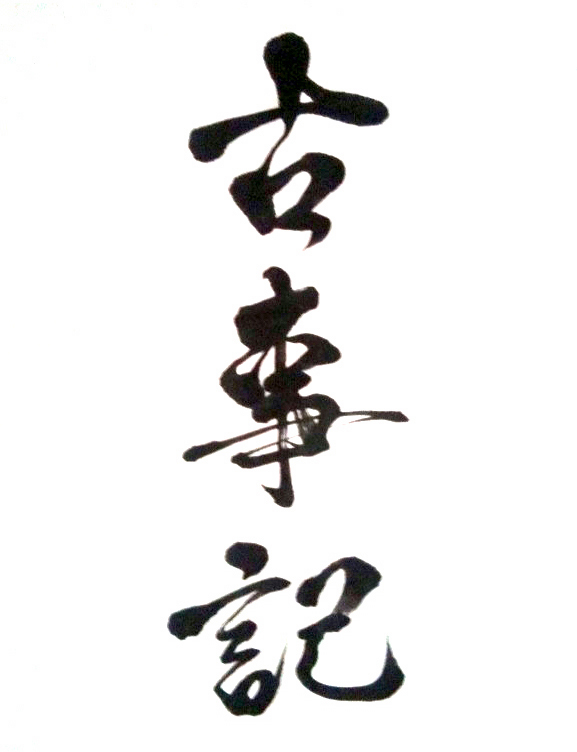 古事記